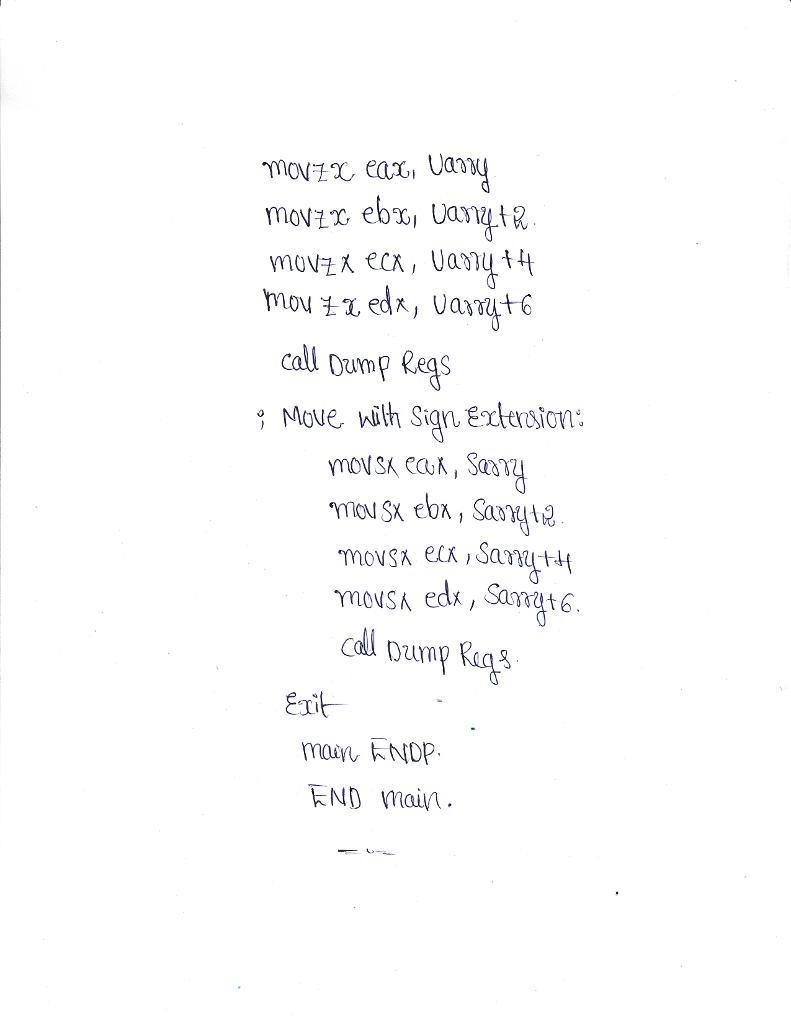 movzx eax, Uarry
movzx ebx, Uarry+2.
movzx ecx, Uarry+4
movzx edx, Uarry+6
call Dump Regs
; Move with Sign Extension:
movsx eax, Sarry
movsx ebx, Sarry+2.
movsx ecx, Sarry+4
movsx edx, Sarry+6.
call Dump Regs.
Exit
main ENDP.
END main.